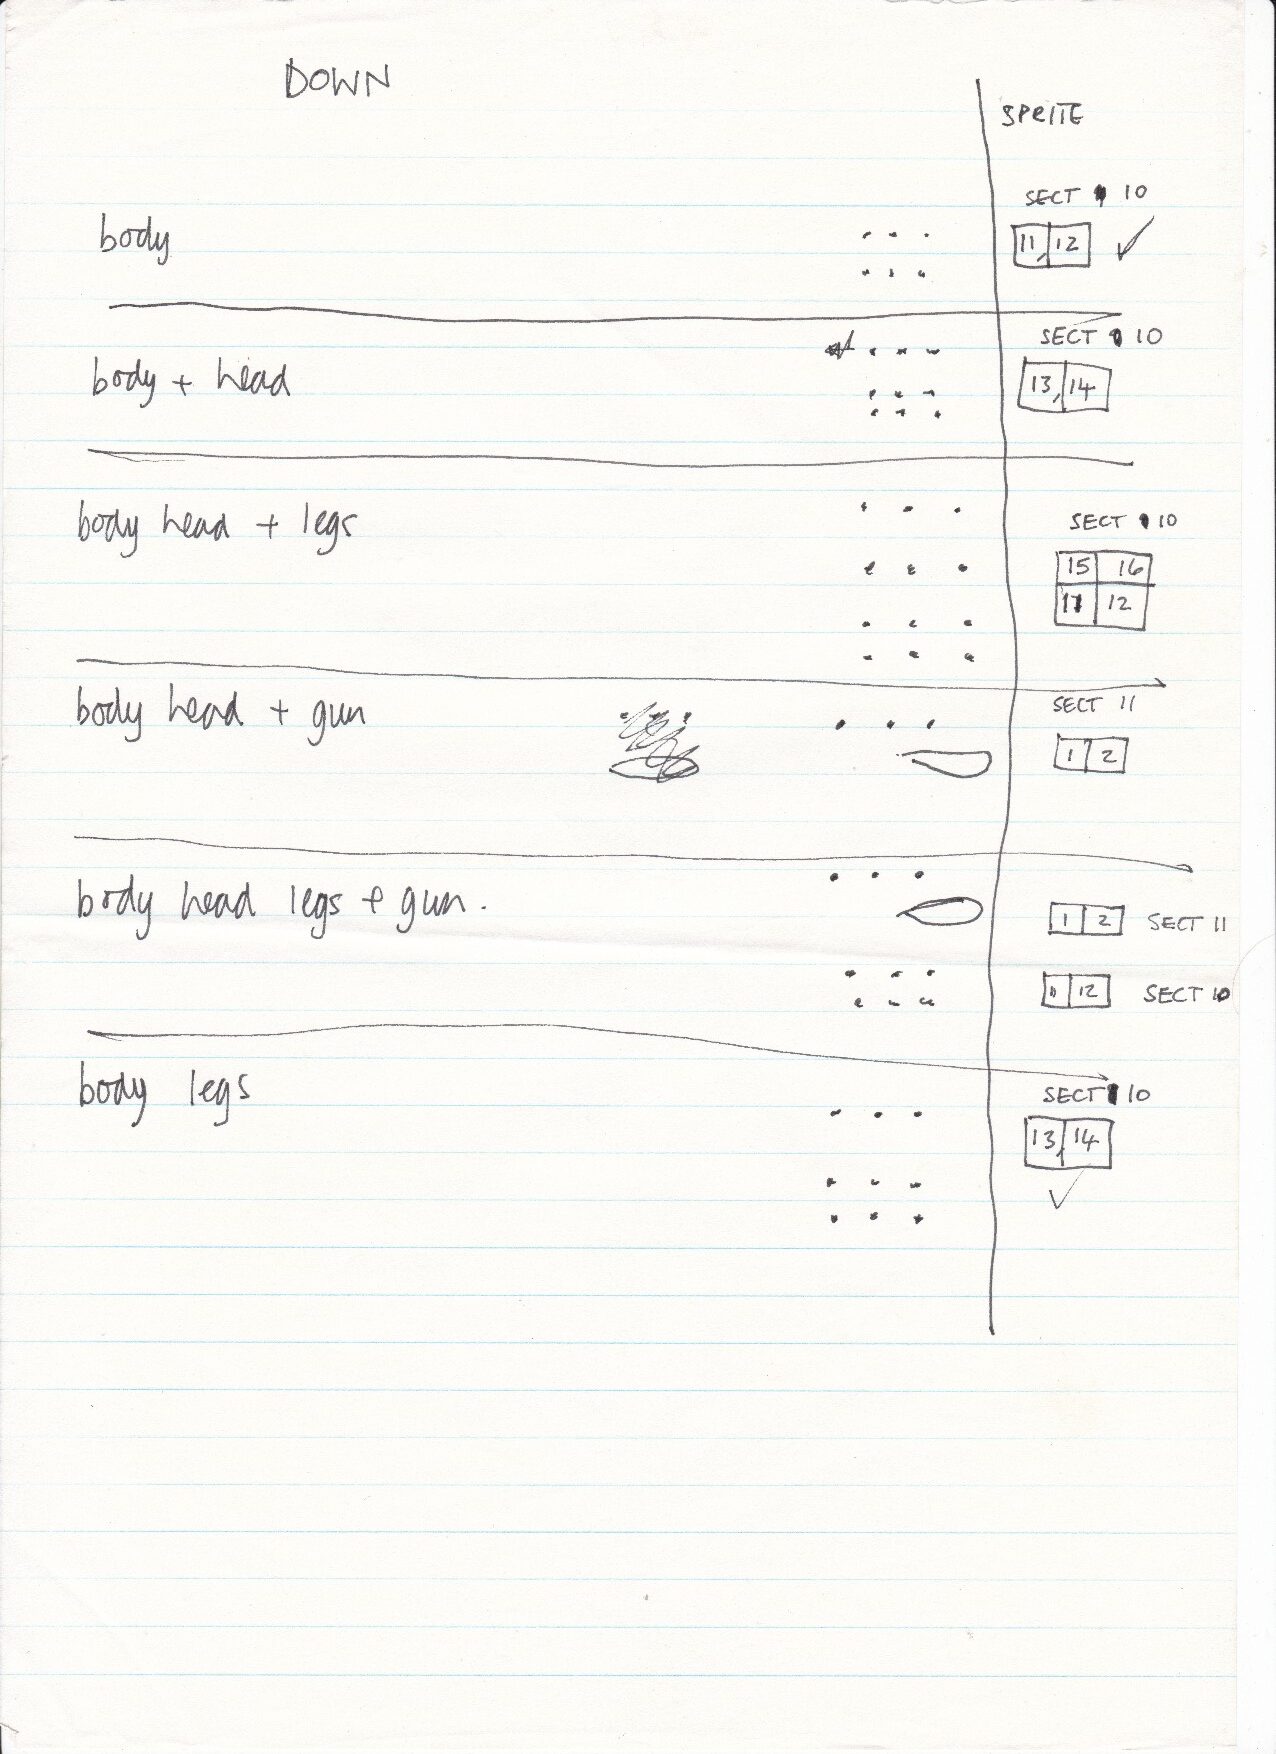 DOWN
SPRITE
SECT 10
body
11, 12
SECT 10
body + head
13, 14
body head + legs
SECT 10
15 16
17 12
body head + gun
SECT 11
1 2
body head legs + gun.
1 2 SECT 11
11 12 SECT 10
body legs
SECT 10
13, 14